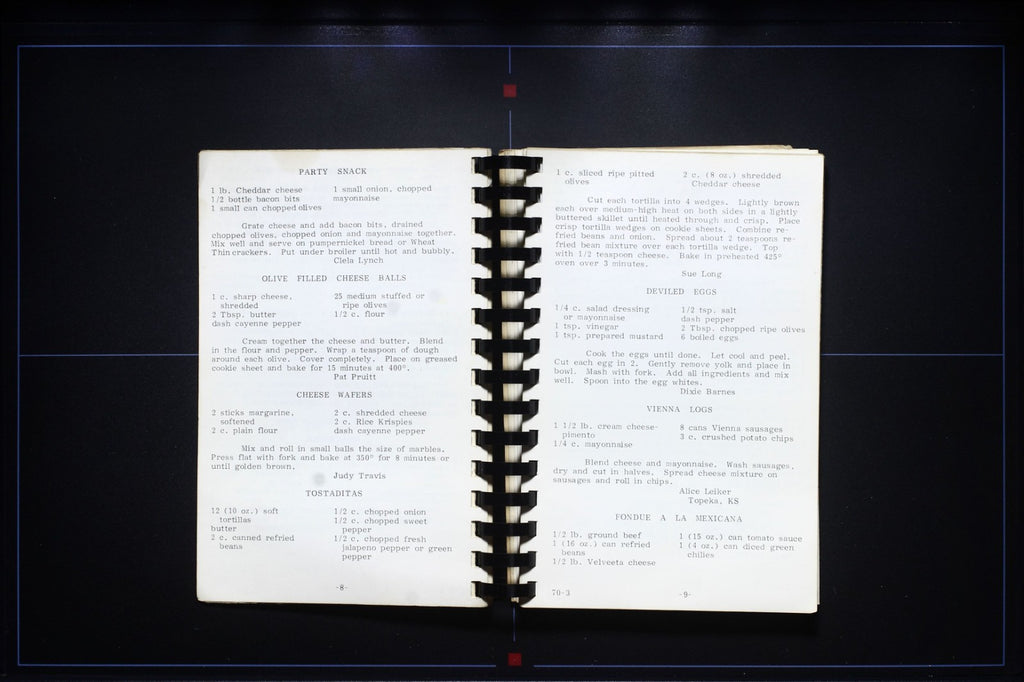 PARTY SNACK
1 lb. Cheddar cheese
1/2 bottle bacon bits
1 small can chopped olives
1 small onion, chopped
mayonnaise
Grate cheese and add bacon bits, drained
chopped olives, chopped onion and mayonnaise together.
Mix well and serve on pumpernickel bread or Wheat
Thin crackers. Put under broiler until hot and bubbly.
Clela Lynch
OLIVE FILLED CHEESE BALLS
1 c. sharp cheese,
shredded
2 Tbsp. butter
dash cayenne pepper
25 medium stuffed or
ripe olives
1/2 c. flour
Cream together the cheese and butter. Blend
in the flour and pepper. Wrap a teaspoon of dough
around each olive. Cover completely. Place on greased
cookie sheet and bake for 15 minutes at 400°.
Pat Pruitt
CHEESE WAFERS
2 sticks margarine,
softened
2 c. plain flour
2 c. shredded cheese
2 c. Rice Krispies
dash cayenne pepper
Mix and roll in small balls the size of marbles.
Press flat with fork and bake at 350° for 8 minutes or
until golden brown.
Judy Travis
TOSTADITAS
12 (10 oz.) soft
tortillas
butter
2 c. canned refried
beans
1/2 c. chopped onion
1/2 c. chopped sweet
pepper
1/2 c. chopped fresh
jalapeno pepper or green
pepper
-8-
1 c. sliced ripe pitted
olives
2 c. (8 oz.) shredded
Cheddar cheese
Cut each tortilla into 4 wedges. Lightly brown
each over medium-high heat on both sides in a lightly
buttered skillet until heated through and crisp. Place
crisp tortilla wedges on cookie sheets. Combine re-
fried beans and onion. Spread about 2 teaspoons re-
fried bean mixture over each tortilla wedge. Top
with 1/2 teaspoon cheese. Bake in preheated 425°
oven over 3 minutes.
Sue Long
DEVILED EGGS
1/4 c. salad dressing
or mayonnaise
1 tsp. vinegar
1 tsp. prepared mustard
1/2 tsp. salt
dash pepper
2 Tbsp. chopped ripe olives
6 boiled eggs
Cook the eggs until done. Let cool and peel.
Cut each egg in 2. Gently remove yolk and place in
bowl. Mash with fork. Add all ingredients and mix
well. Spoon into the egg whites.
Dixie Barnes
VIENNA LOGS
1 1/2 lb. cream cheese-
pimento
1/4 c. mayonnaise
8 cans Vienna sausages
3 c. crushed potato chips
Blend cheese and mayonnaise. Wash sausages,
dry and cut in halves. Spread cheese mixture on
sausages and roll in chips.
Alice Leiker
Topeka, KS
FONDUE A LA MEXICANA
1/2 lb. ground beef
1 (16 oz.) can refried
beans
1/2 lb. Velveeta cheese
1 (15 oz.) can tomato sauce
1 (4 oz.) can diced green
chilies
70-3
-9-